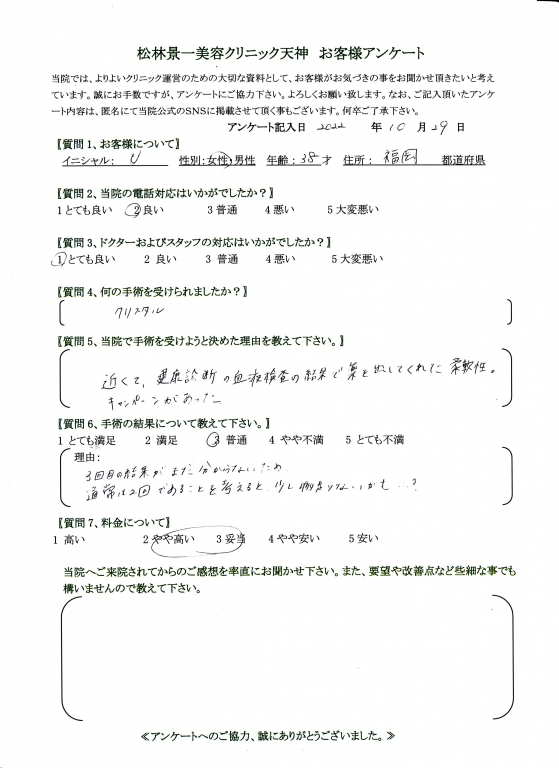 松林景一美容クリニック天神　お客様アンケート
当院では、よりよいクリニック運営のための大切な資料として、お客様がお気づきの事をお聞かせ頂きたいと考え
ています。誠にお手数ですが、アンケートにご協力下さい。よろしくお願い致します。なお、ご記入頂いたアンケ
ート内容は、匿名にて当院公式のSNSに掲載させて頂く事もございます。何卒ご了承下さい。
アンケート記入日 2022 年 10 月 29 日
〖質問 1、お客様について〗
イニシャル： U 性別：女性・男性 年齢：38才 住所： 福岡 都道府県
〖質問 2、当院の電話対応はいかがでしたか？〗
1 とても良い 2 良い 3 普通 4 悪い 5 大変悪い
〖質問 3、ドクターおよびスタッフの対応はいかがでしたか？〗
1 とても良い 2 良い 3 普通 4 悪い 5 大変悪い
〖質問 4、何の手術を受けられましたか？〗
クリスタル
〖質問 5、当院で手術を受けようと決めた理由を教えて下さい。〗
近くて、健康診断の血液検査の結果で薬を出してくれた柔軟性。
キャンペーンがあった
〖質問 6、手術の結果について教えて下さい。〗
1 とても満足 2 満足 3 普通 4 やや不満 5 とても不満
理由：
3回目の結果がまだ分からないため
通常は2回であることを考えると、少し物足りないかも…？
〖質問 7、料金について〗
1 高い 2 やや高い 3 妥当 4 やや安い 5 安い
当院へご来院されてからのご感想を率直にお聞かせ下さい。また、要望や改善点など些細な事でも
構いませんので教えて下さい。
≪アンケートへのご協力、誠にありがとうございました。≫